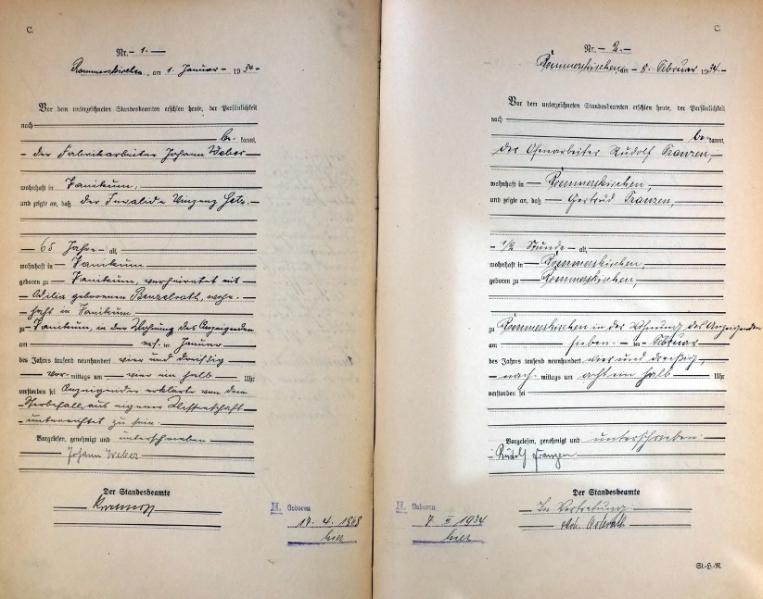 C.
Nr. - 1. -
Rommerskirchen, am 1. Januar - 1934 -
Vor dem unterzeichneten Standesbeamten erschien heute, der Persönlichkeit
nach
be- kannt,
- der Fabrikarbeiter Johann Weber
wohnhaft in - Vanikum,
und zeigte an, daß - der Invalide Vinzenz Getz -
- 65 Jahre - alt,
wohnhaft in - Vanikum
geboren zu - Vanikum, verheiratet mit
- Odilia geborenen Penzelrath, wohn-
- haft in Vanikum
zu Vanikum, in der Wohnung des Anzeigenden
am ersten Januar
des Jahres tausend neunhundert vier und dreißig
- vor - mittags um - vier ein halb - Uhr
verstorben sei Anzeigender erklärte von dem
Sterbefall aus eigener Wissenschaft
- unterrichtet zu sein. -
Vorgelesen, genehmigt und unterschrieben
Johann Weber
Der Standesbeamte
H. Geboren
17. 4. 1868
hier
C.
Nr. - 2. -
Rommerskirchen, am - 8. Februar 1934. -
Vor dem unterzeichneten Standesbeamten erschien heute, der Persönlichkeit
nach
be- kannt,
der Ofenarbeiter Rudolf Franzen,
wohnhaft in - Rommerskirchen,
und zeigte an, daß - Gertrud Franzen,
- 1/2 Stunde - alt,
wohnhaft in - Rommerskirchen,
geboren zu - Rommerskirchen,
zu Rommerskirchen in der Wohnung des Anzeigenden
am - sieben - ten Februar
des Jahres tausend neunhundert vier und dreißig,
- nach - mittags um acht ein halb - Uhr
verstorben sei
Vorgelesen, genehmigt und unterschrieben.
Rudolf Franzen
Der Standesbeamte
In Vertretung:
H. Geboren
7. II 1934
hier
St.-H.-R.